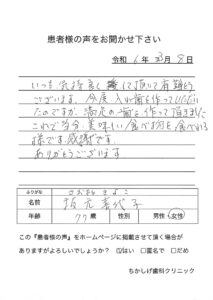 患者様の声をお聞かせ下さい
令和 6年 3月 8日
いつも気持良く して頂いて有難う
ございます。今度 入れ歯を作っていただい
たのですが、満足の一歯を作って頂きました
これで当分、美味しい食べ物を食べれる
様です。感謝です。
ありがとうございます
ふりがな さかもと きよこ
名前 坂元 喜代子
年齢 77歳 性別 男性・女性
この『患者様の声』をホームページに掲載させて頂く場合が
ありますがよろしいでしょうか? ☑はい □匿名で □だめ
ちかしげ歯科クリニック